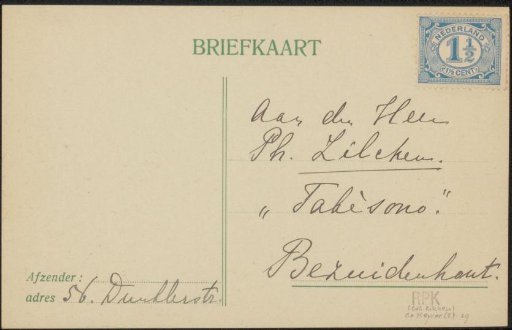 BRIEFKAART
NEDERLAND
1½
1½ CENT
Aan den Heer
Ph. Zilcken.
„Tabèsono."
Bezuidenhout.
Afzender:
adres 56. Dunklerstr.
RPK